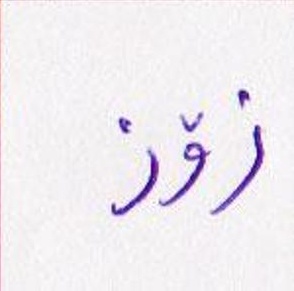 زۆز